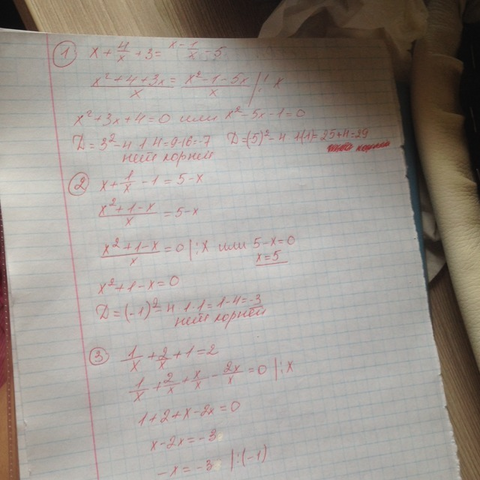 ① x + 4/x + 3 = x - 1/x - 5
(x² + 4 + 3x)/x = (x² - 1 - 5x)/x |: x
x² + 3x + 4 = 0 или x² - 5x - 1 = 0
D = 3² - 4·1·4 = 9 - 16 = -7 D = (5)² - 4·1·(1) = 25 + 4 = 29
нет корней
② x + 1/x - 1 = 5 - x
(x² + 1 - x)/x = 5 - x
(x² + 1 - x)/x = 0 |: x или 5 - x = 0
x = 5
x² + 1 - x = 0
D = (-1)² - 4·1·1 = 1 - 4 = -3
нет корней
③ 1/x + 2/x + 1 = 2
1/x + 2/x + x/x - 2x/x = 0 |: x
1 + 2 + x - 2x = 0
x - 2x = -3
-x = -3 |: (-1)